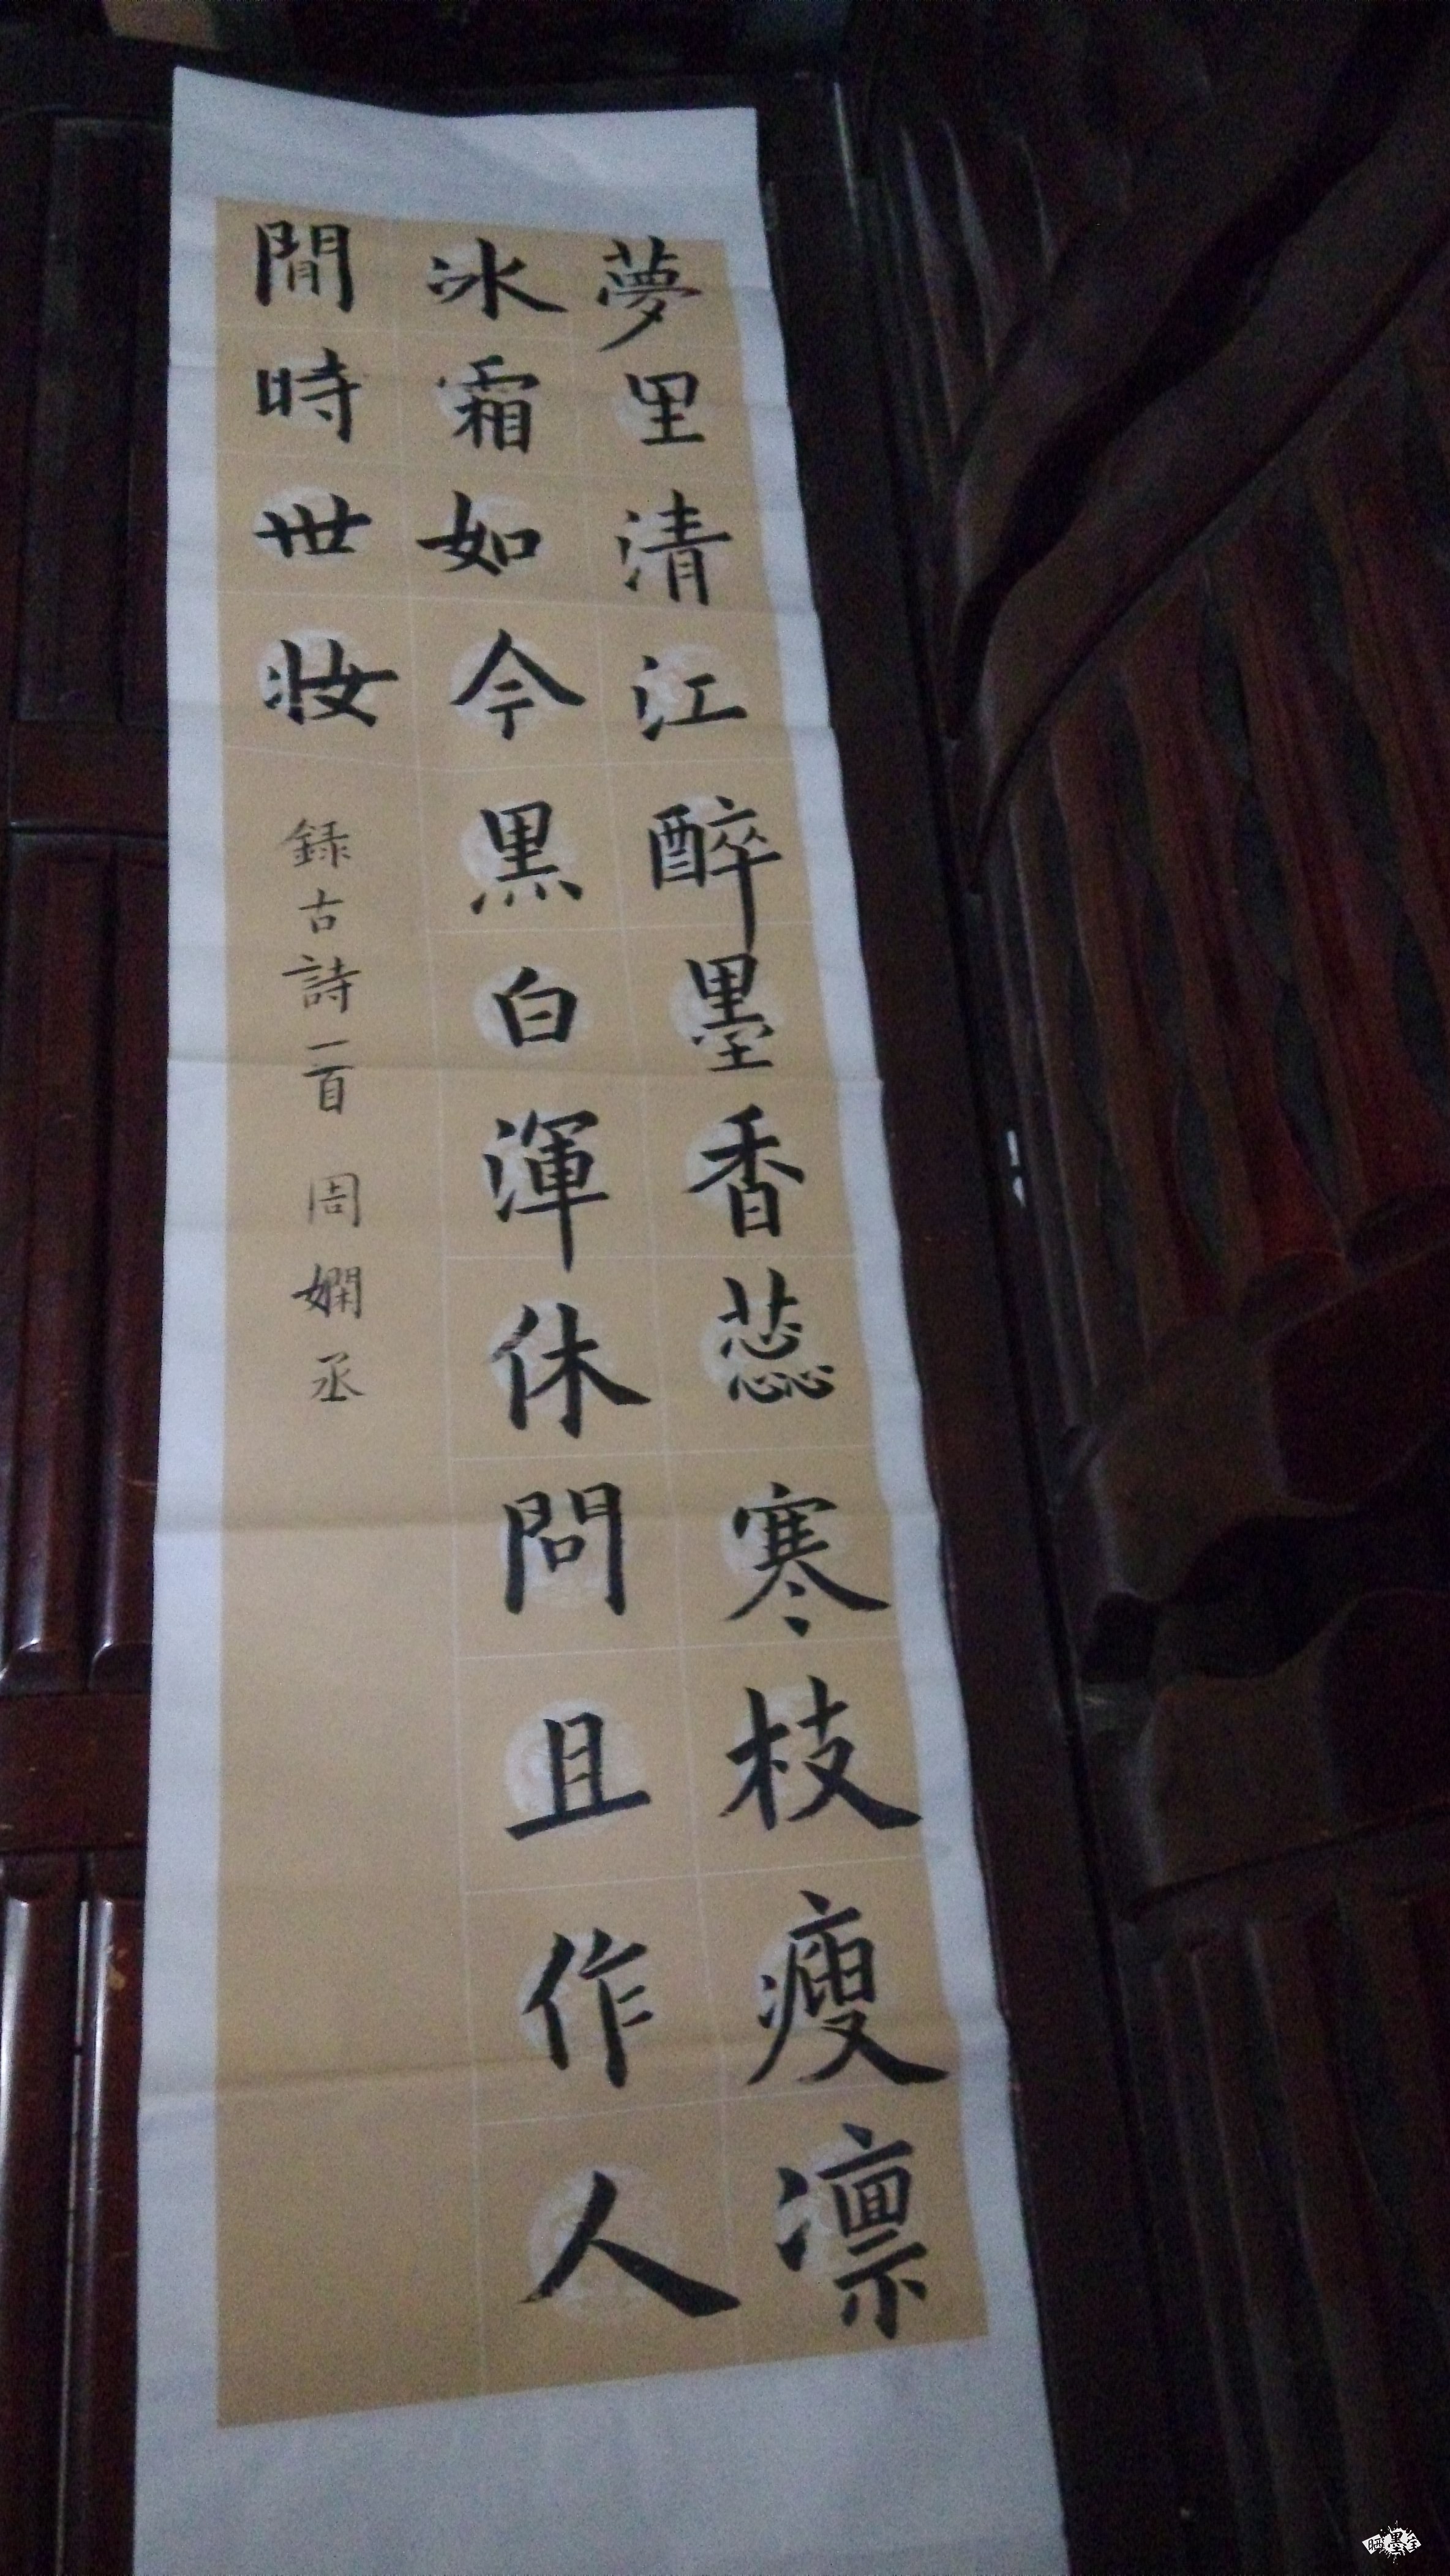 夢里清江醉墨香蕊寒枝瘦凛
冰霜如今黑白渾休問且作人
間時世妝
録古詩一首 周嫻丞
晒墨宝